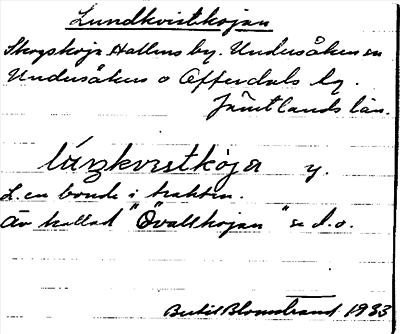 Lundkvistkojan
Skogskoja Hallens by. Undersåkers sn
Undersåkers o Offerdals tg.
Jämtlands län.
lúnkvistkòja y.
L. en bonde i trakten.
Äv kallad "Övallkojan" se d.o.
Bertil Blomstrand 1933